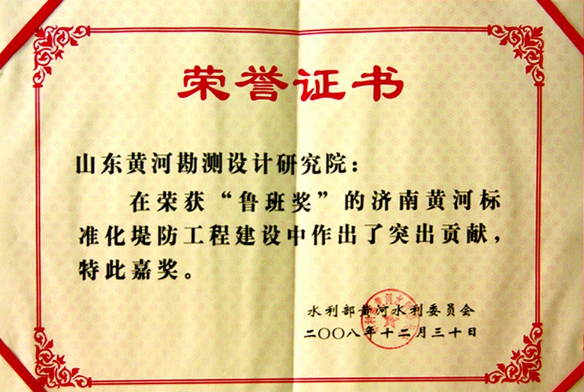 荣誉证书
山东黄河勘测设计研究院：
在荣获“鲁班奖”的济南黄河标
准化堤防工程建设中作出了突出贡献，
特此嘉奖。
水利部黄河水利委员会
二〇〇八年十二月三十日